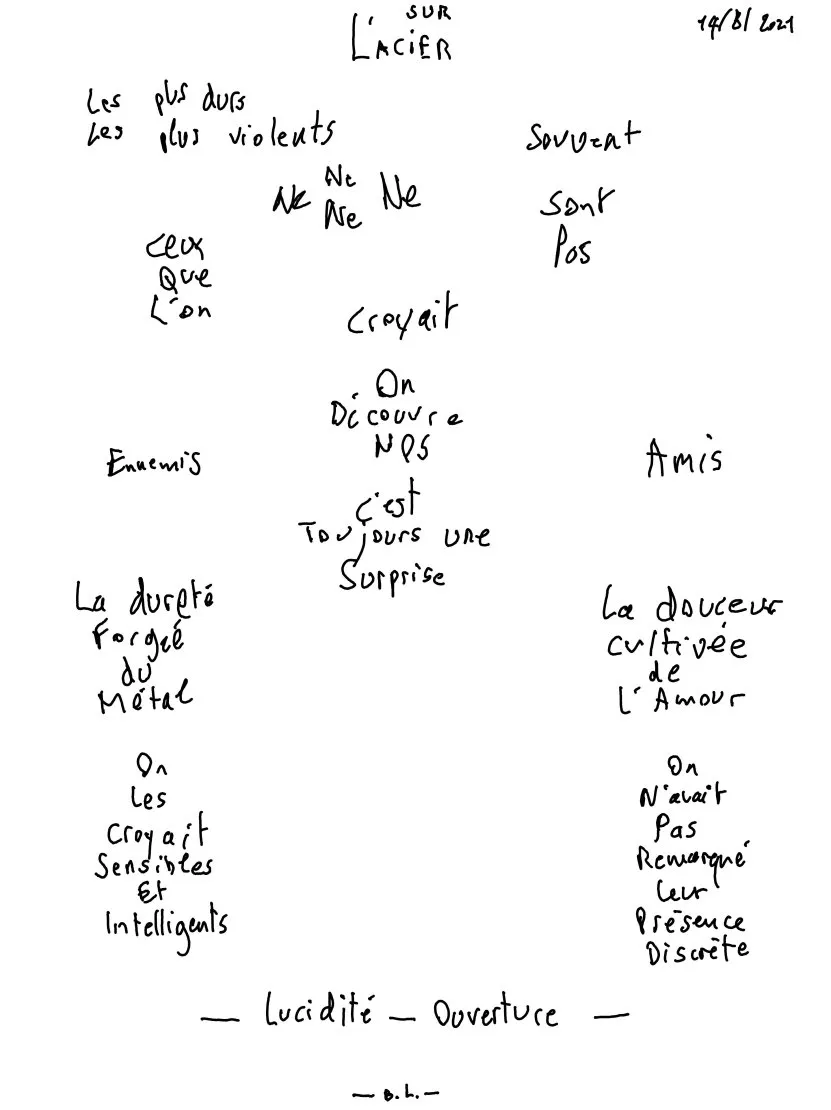 SUR
L'ACIER
14/8/2021
Les plus durs
Les plus violents
Souvent
Ne Ne Ne
Ne
Sont
Pas
Ceux
Que
L'on
Croyait
On
Découvre
NOS
Ennemis
Amis
C'est
Toujours une
Surprise
La dureté
Forgée
du
Métal
La douceur
cultivée
de
L'Amour
On
Les
Croyait
Sensibles
Et
Intelligents
On
N'avait
Pas
Remarqué
Leur
Présence
Discrète
— Lucidité — Ouverture —
— B.L. —